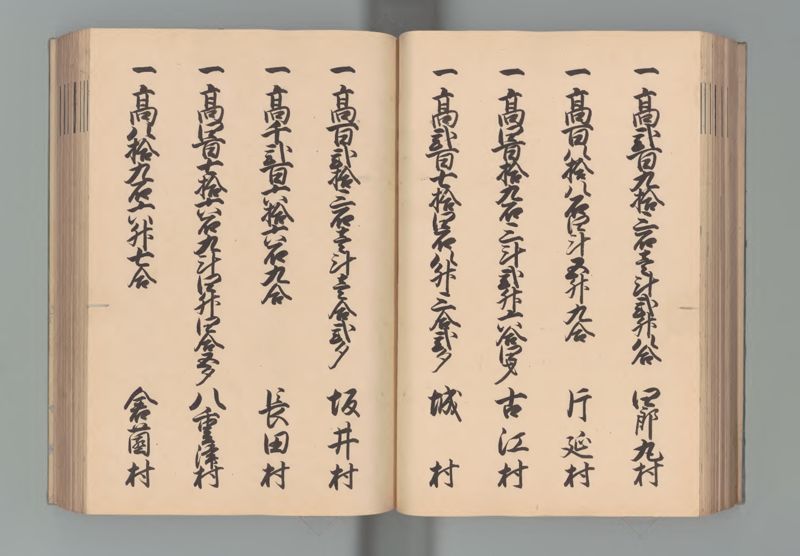 一 高弐百九拾三石壱斗弐升八合 四郎丸村
一 高百八拾八石四斗五升九合 片延村
一 高四百拾九石三斗弐升六合四夕 古江村
一 高弐百七拾四石八升三合弐夕 城村
一 高百弐拾三石壱斗壱合弐夕 坂井村
一 高千弐百六拾六石九合 長田村
一 高四百七拾六石九斗四升四合五夕 八重津村
一 高八拾九石六升七合 倉薗村